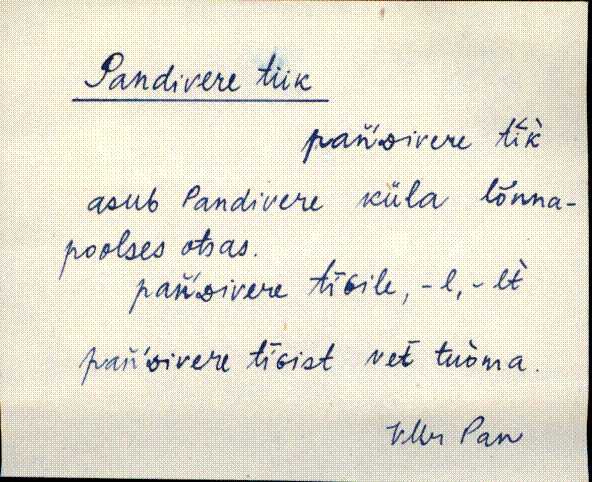 Pandivere tiik
pań'ᴅivere tī̆k̀
asub Pandivere küla lõuna-
poolses otsas.
pań'ᴅivere tīɢile, -l, -lt̀
pań'ᴅivere tīɢist vet̀ tuòma.
VMr Pan